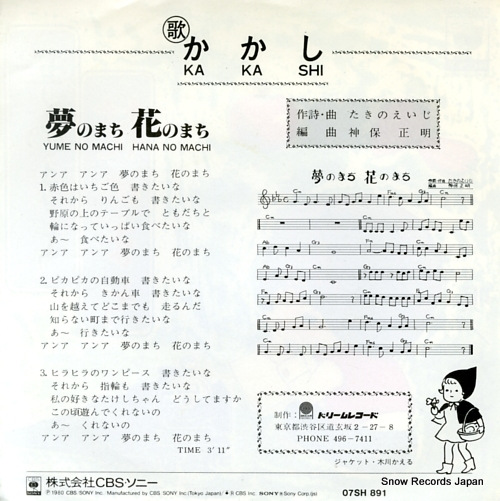 歌 かかし
KA KA SHI
夢のまち 花のまち
YUME NO MACHI HANA NO MACHI
作詩・曲 たきのえいじ
編曲 神保正明
アンア アンア 夢のまち 花のまち
1. 赤色はいちご色 書きたいな
それから りんごも 書きたいな
野原の上のテーブルで ともだちと
輪になっていっぱい食べたいな
あ〜 食べたいな
アンア アンア 夢のまち 花のまち
2. ピカピカの自動車 書きたいな
それから きかん車 書きたいな
山を越えてどこまでも 走るんだ
知らない町まで行きたいな
あ〜 行きたいな
アンア アンア 夢のまち 花のまち
3. ヒラヒラのワンピース 書きたいな
それから 指輪も 書きたいな
私の好きなたけしちゃん どうしてますか
この頃遊んでくれないの
あ〜 くれないの
アンア アンア 夢のまち 花のまち
TIME 3′11″
夢のまち 花のまち
制作: ドリームレコード
東京都渋谷区道玄坂2-27-8
PHONE 496-7411
ジャケット・木川かえる
株式会社CBS・ソニー
07SH 891
Ⓟ 1980 CBS SONY Inc. Manufactured by CBS SONY Inc. (Tokyo Japan)
Snow Records Japan
www.snowrecords.jp